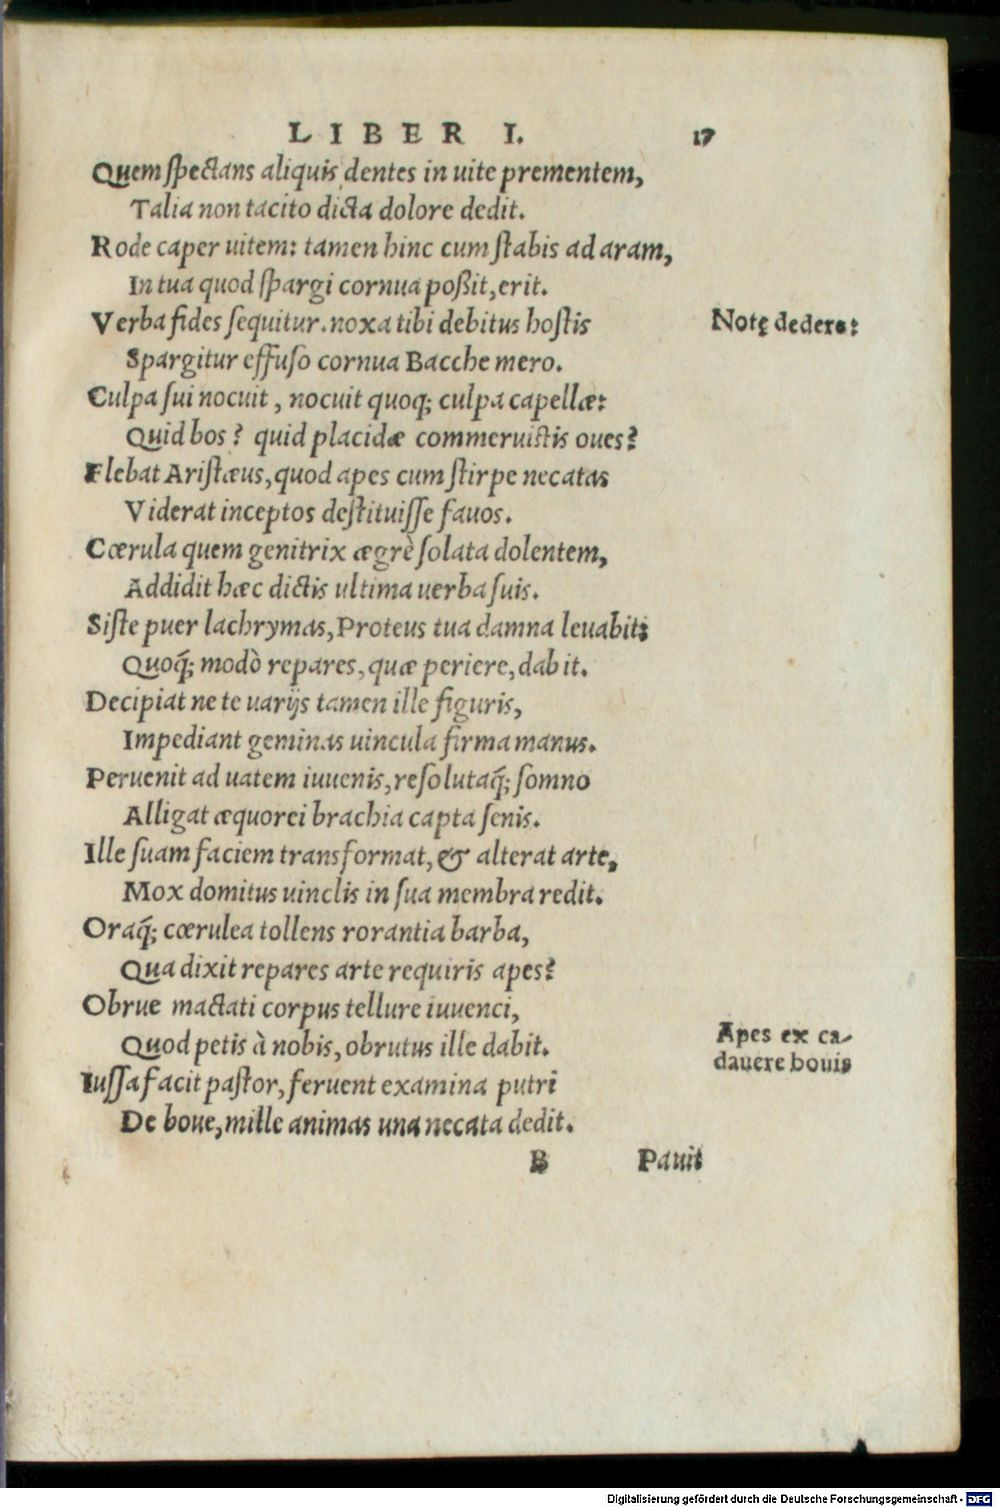 LIBER I. 17
Quem spectans aliquis dentes in uite prementem,
Talia non tacito dicta dolore dedit.
Rode caper uitem: tamen hinc cum stabis ad aram,
In tua quod spargi cornua poßit, erit.
Verba fides sequitur. noxa tibi debitus hostis
Notę dedere:
Spargitur effuso cornua Bacche mero.
Culpa sui nocuit, nocuit quoq; culpa capellæ:
Quid bos? quid placidæ commeruistis oues?
Flebat Aristæus, quod apes cum stirpe necatas
Viderat inceptos destituisse fauos.
Cœrula quem genitrix ægrè solata dolentem,
Addidit hæc dictis ultima uerba suis.
Siste puer lachrymas, Proteus tua damna leuabit;
Quoq̃; modò repares, quæ periere, dabit.
Decipiat ne te uarijs tamen ille figuris,
Impediant geminas uincula firma manus.
Peruenit ad uatem iuuenis, resolutaq̃; somno
Alligat æquorei brachia capta senis.
Ille suam faciem transformat, & alterat arte,
Mox domitus uinclis in sua membra redit.
Oraq̃; cœrulea tollens rorantia barba,
Qua dixit repares arte requiris apes?
Obrue mactati corpus tellure iuuenci,
Quod petis à nobis, obrutus ille dabit.
Apes ex ca-
dauere bouis
Iussa facit pastor, feruent examina putri
De boue, mille animas una necata dedit.
B Pauit
Digitalisierung gefördert durch die Deutsche Forschungsgemeinschaft - DFG